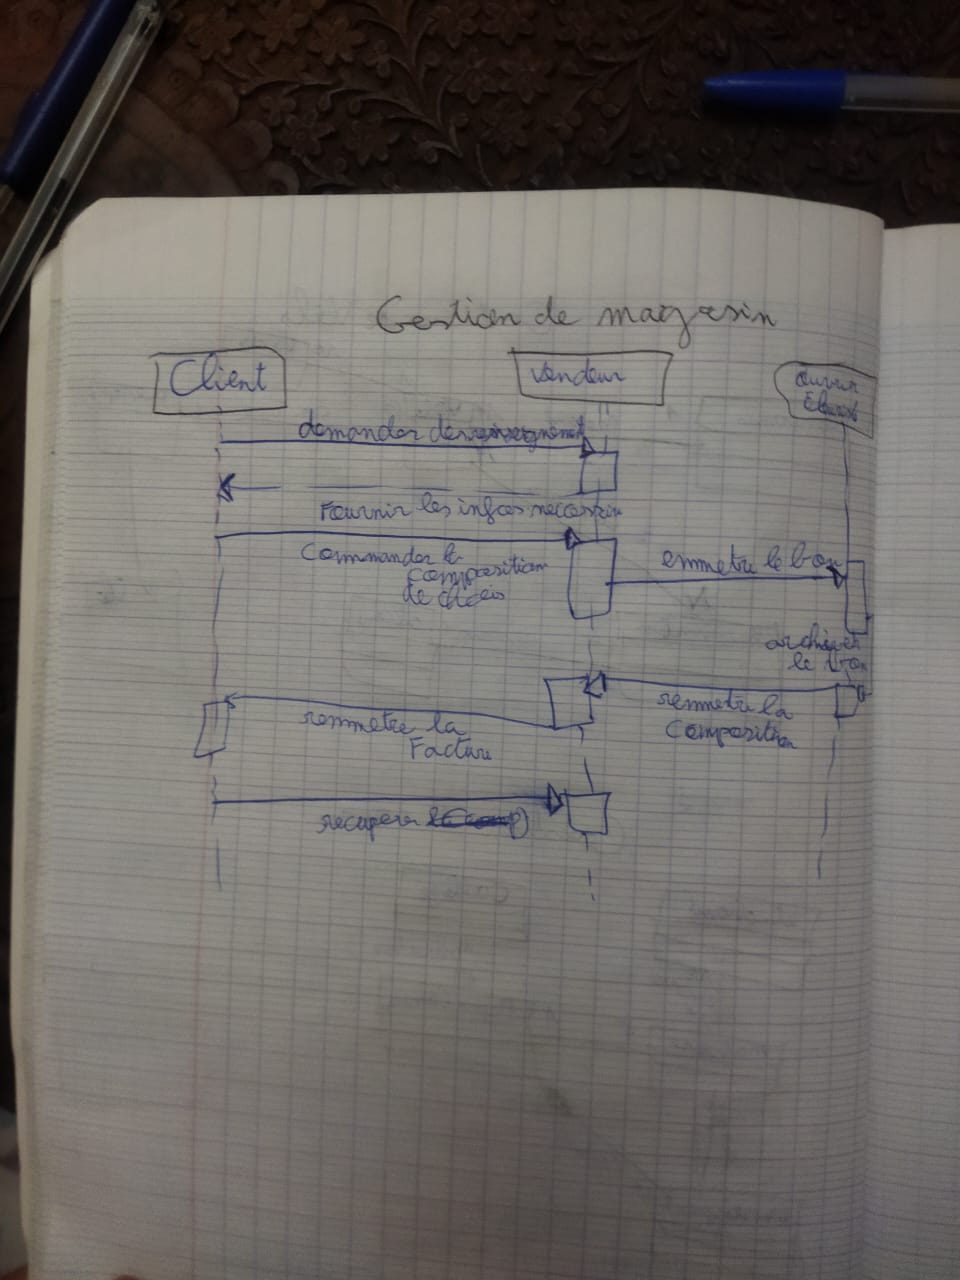 Gestion de magasin
Client
Vendeur
demander des renseignement
Fournir les infos necessaire
Commander la
composition
de choix
emmetre le bon
archiver
le bon
remmetre la
Composition
remmetre la
Facture
recuperer